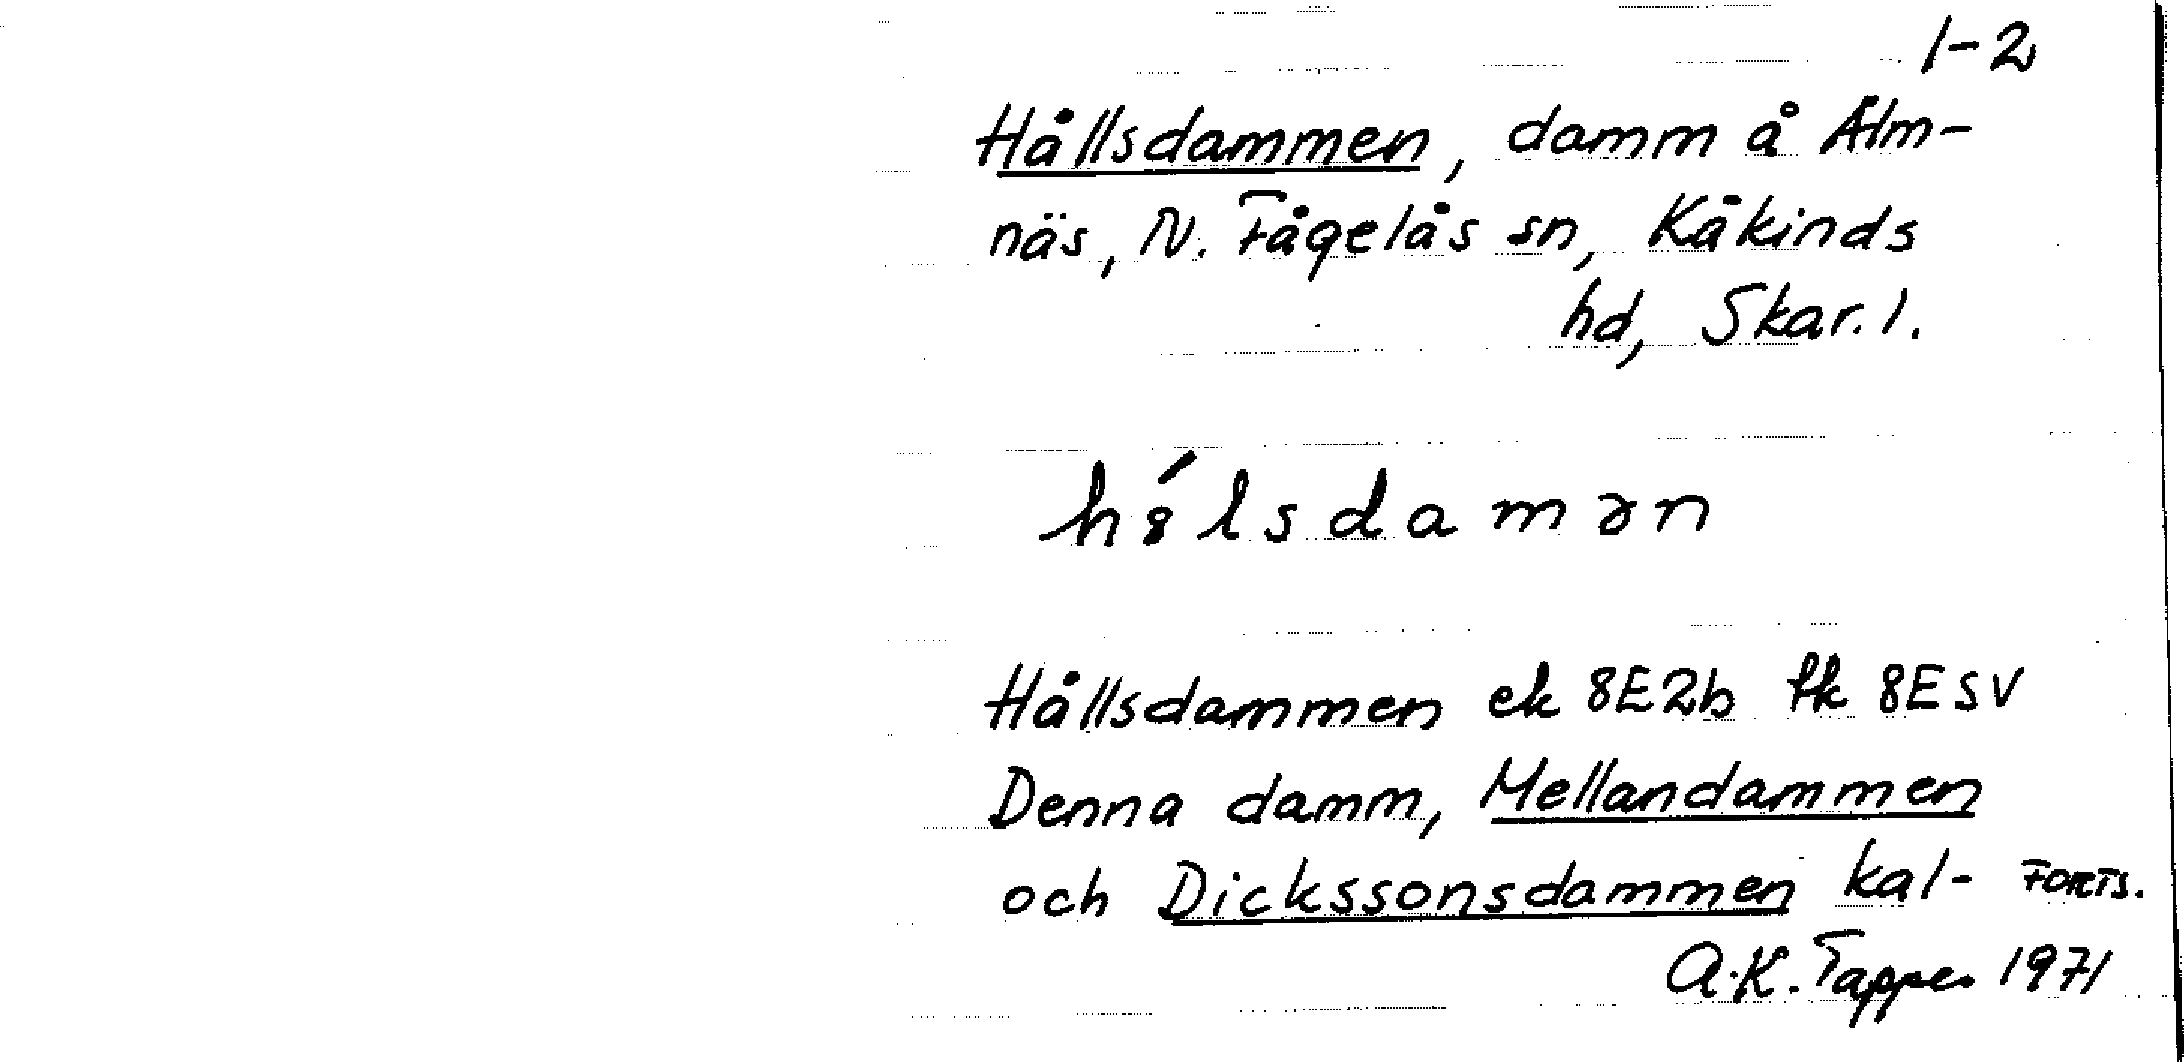 1-2
Hållsdammen, damm å Älm-
näs, N. Fågelås sn, Kåkinds
hd, Skar. l.
hålsdamən
Hållsdammen ek 8E2b tk 8ESV
Denna damm, Mellandammen
och Dickssonsdammen kal- FORTS.
A.K. Tapper 1971